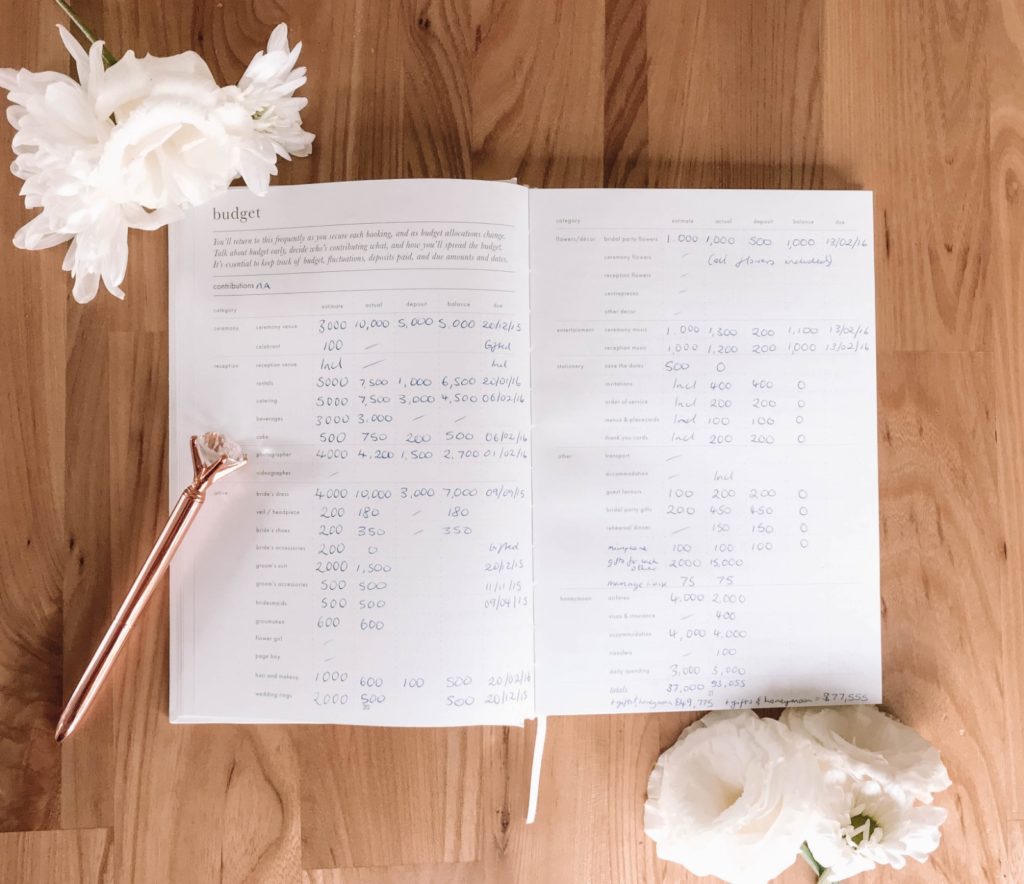 budget
You'll return to this frequently as you secure each booking, and as budget allocations change.
Talk about budget early, decide who's contributing what, and how you'll spread the budget.
It's essential to keep track of budget, fluctuations, deposits paid, and due amounts and dates.
contributions NA
category
estimate actual deposit balance due
ceremony ceremony venue 3000 10,000 5,000 5.000 20/12/15
celebrant 100 — Gifted
reception reception venue Incl — Incl
rentals 5000 7,500 1,000 6,500 20/01/16
catering 5000 7,500 3,000 4,500 06/02/16
beverages 3000 3.000 — —
cake 500 750 200 500 06/02/16
photographer 4000 4,200 1,500 2,700 01/02/16
videographer —
attire bride's dress 4000 10,000 3,000 7,000 09/09/15
veil / headpiece 200 180 — 180
bride's shoes 200 350 — 350
bride's accessories 200 0 Gifted
groom's suit 2000 1,500 20/12/15
groom's accessories 500 500 11/11/15
bridesmaids 500 500 09/04/15
groomsmen 600 600
flower girl —
page boy —
hair and makeup 1000 600 100 500 20/02/16
wedding rings 2000 500 500 20/12/15
category estimate actual deposit balance due
flowers/décor bridal party flowers 1.000 1,000 500 1,000 13/02/16
ceremony flowers — (all flowers included)
reception flowers —
centrepieces —
other decor —
entertainment ceremony music 1.000 1,300 200 1,100 13/02/16
reception music 1,000 1,200 200 1,000 13/02/16
stationery save the dates 500 0
invitations Incl 400 400 0
order of service Incl 200 200 0
menus & placecards Incl 100 100 0
thank you cards Incl 200 200 0
other transport —
accommodation — Incl
guest favours 100 200 200 0
bridal party gifts 200 450 450 0
rehearsal dinner — 150 150 0
100 100 100 0
gifts for each other 2000 15,000
75 75
honeymoon airlines 4.000 2,000
visas & insurance — 400
accommodation 4,000 4.000
transfers — 100
daily spending 3,000 5,000
totals 37,000 53,055
+ gifts & honeymoon £49,775 + gifts & honeymoon = $77,555